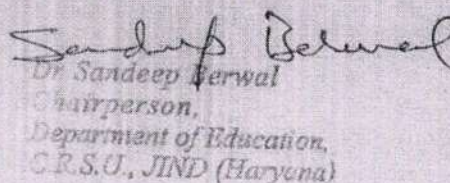 Sandeep Berwal
Dr Sandeep Berwal
Chairperson,
Department of Education,
C.R.S.U., JIND (Haryana)